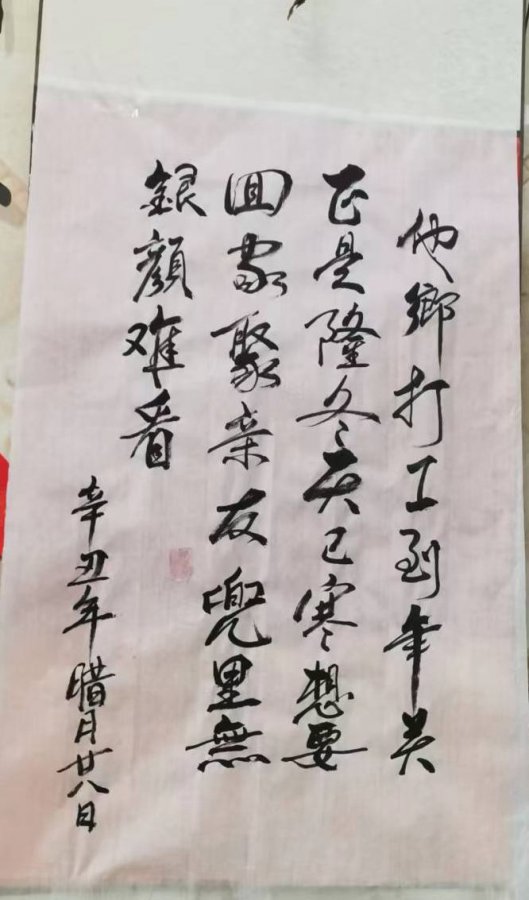 他鄉打工到年关
正是隆冬天已寒想要
回家聚亲友兜里無
銀顏难看
辛丑年腊月廿八日